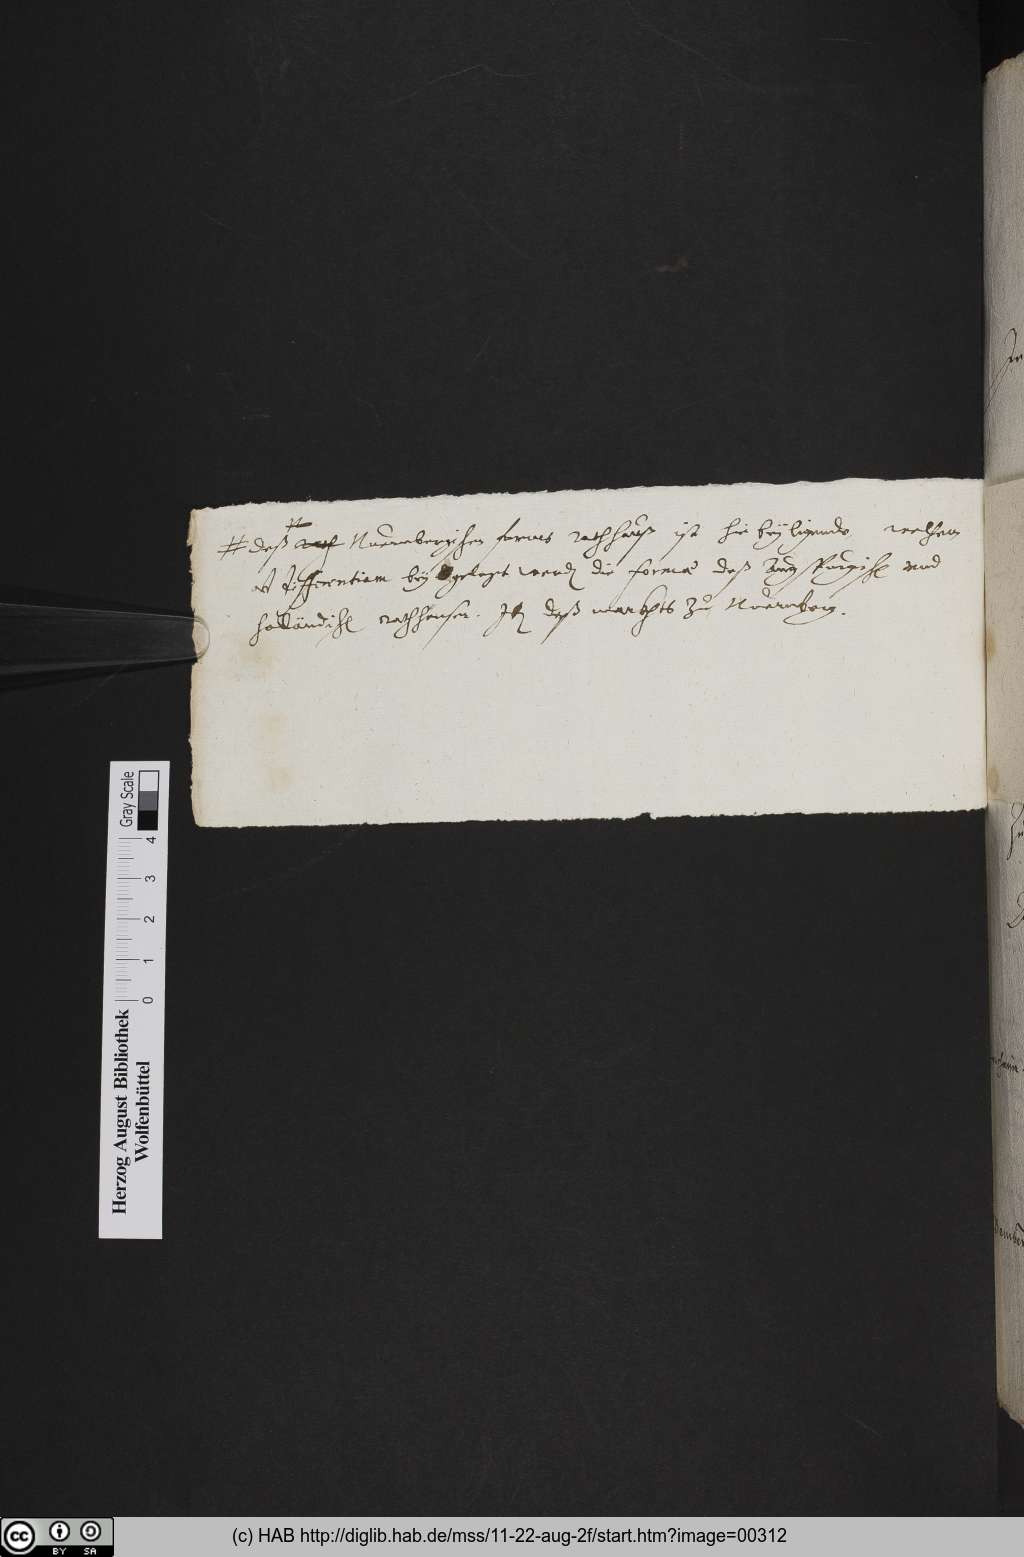 # deß Nuernbergischen forms rathhauß ist hie beÿligends, welchem
ad differentiam beÿ gelegt werden die formæ deß Augspurgisch vnd
holländisch rathheuser. Itē deß markhts zu Nuernberg.
Gray Scale
0 1 2 3 4
Herzog August Bibliothek
Wolfenbüttel
cc BY SA
(c) HAB http://diglib.hab.de/mss/11-22-aug-2f/start.htm?image=00312